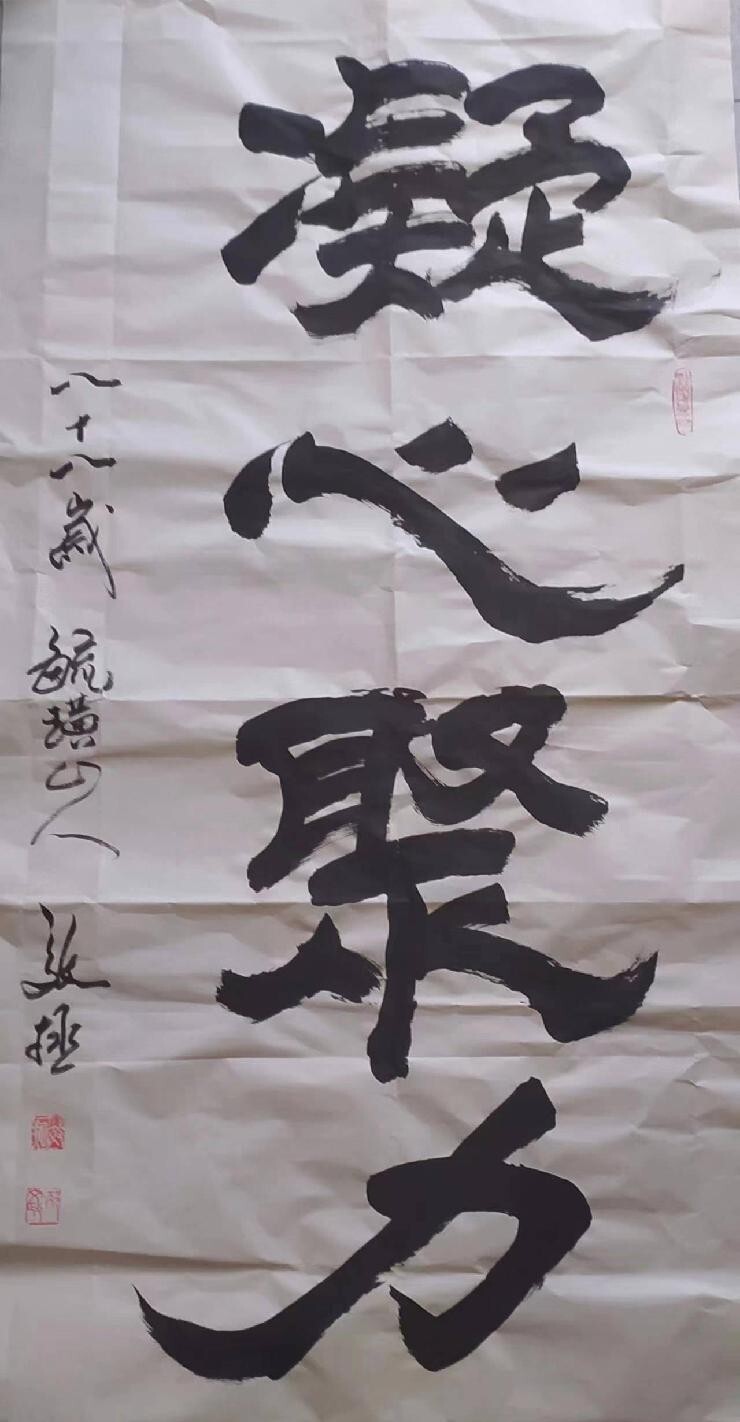 凝心聚力
八十八歲 毓璜山人